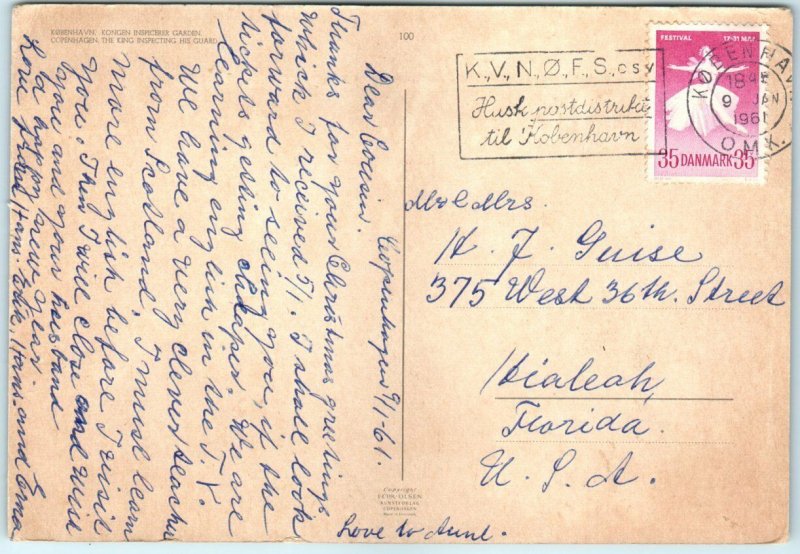 KØBENHAVN. KONGEN INSPICERER GARDEN.
COPENHAGEN, THE KING INSPECTING HIS GUARD.
100
Copenhagen 9/1-61.
Dear Cousin.
Thanks for your Christmas greetings
which I received 5/1. I shall look
forward to seeing you, if the
tickets getting cheaper. We are
learning english in the T.V.
We have a very clever teacher
from Scotland, I must learn
more english before I visit
you. Then I will close and wish
you and your husband
a happy new year.
Love from
Hans and Erna
Love to Aunt.
K., V., N., Ø., F., S., osv
Husk postdistrikt
til København
FESTIVAL 17-31 MAJ
35 DANMARK 35
KØBENHAVN
18
9 JAN
1961
OMK.
Mr & Mrs.
H. J. Guise
375 West 36th. Street
Hialeah,
Florida.
U. S. A.
Copyright
KUNSTFORLAG
COPENHAGEN